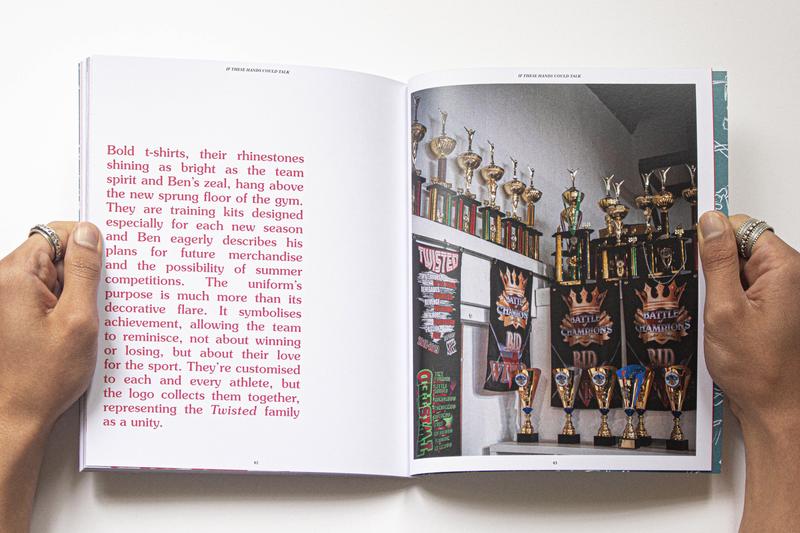 IF THESE HANDS COULD TALK
Bold t-shirts, their rhinestones
shining as bright as the team
spirit and Ben's zeal, hang above
the new sprung floor of the gym.
They are training kits designed
especially for each new season
and Ben eagerly describes his
plans for future merchandise
and the possibility of summer
competitions. The uniform's
purpose is much more than its
decorative flare. It symbolises
achievement, allowing the team
to reminisce, not about winning
or losing, but about their love
for the sport. They're customised
to each and every athlete, but
the logo collects them together,
representing the Twisted family
as a unity.
IF THESE HANDS COULD TALK
TWISTED
BATTLE
CHAMPIONS
BID
BATTLE
CHAMPIONS
BID
BATTLE
CHAMPIONS
BID